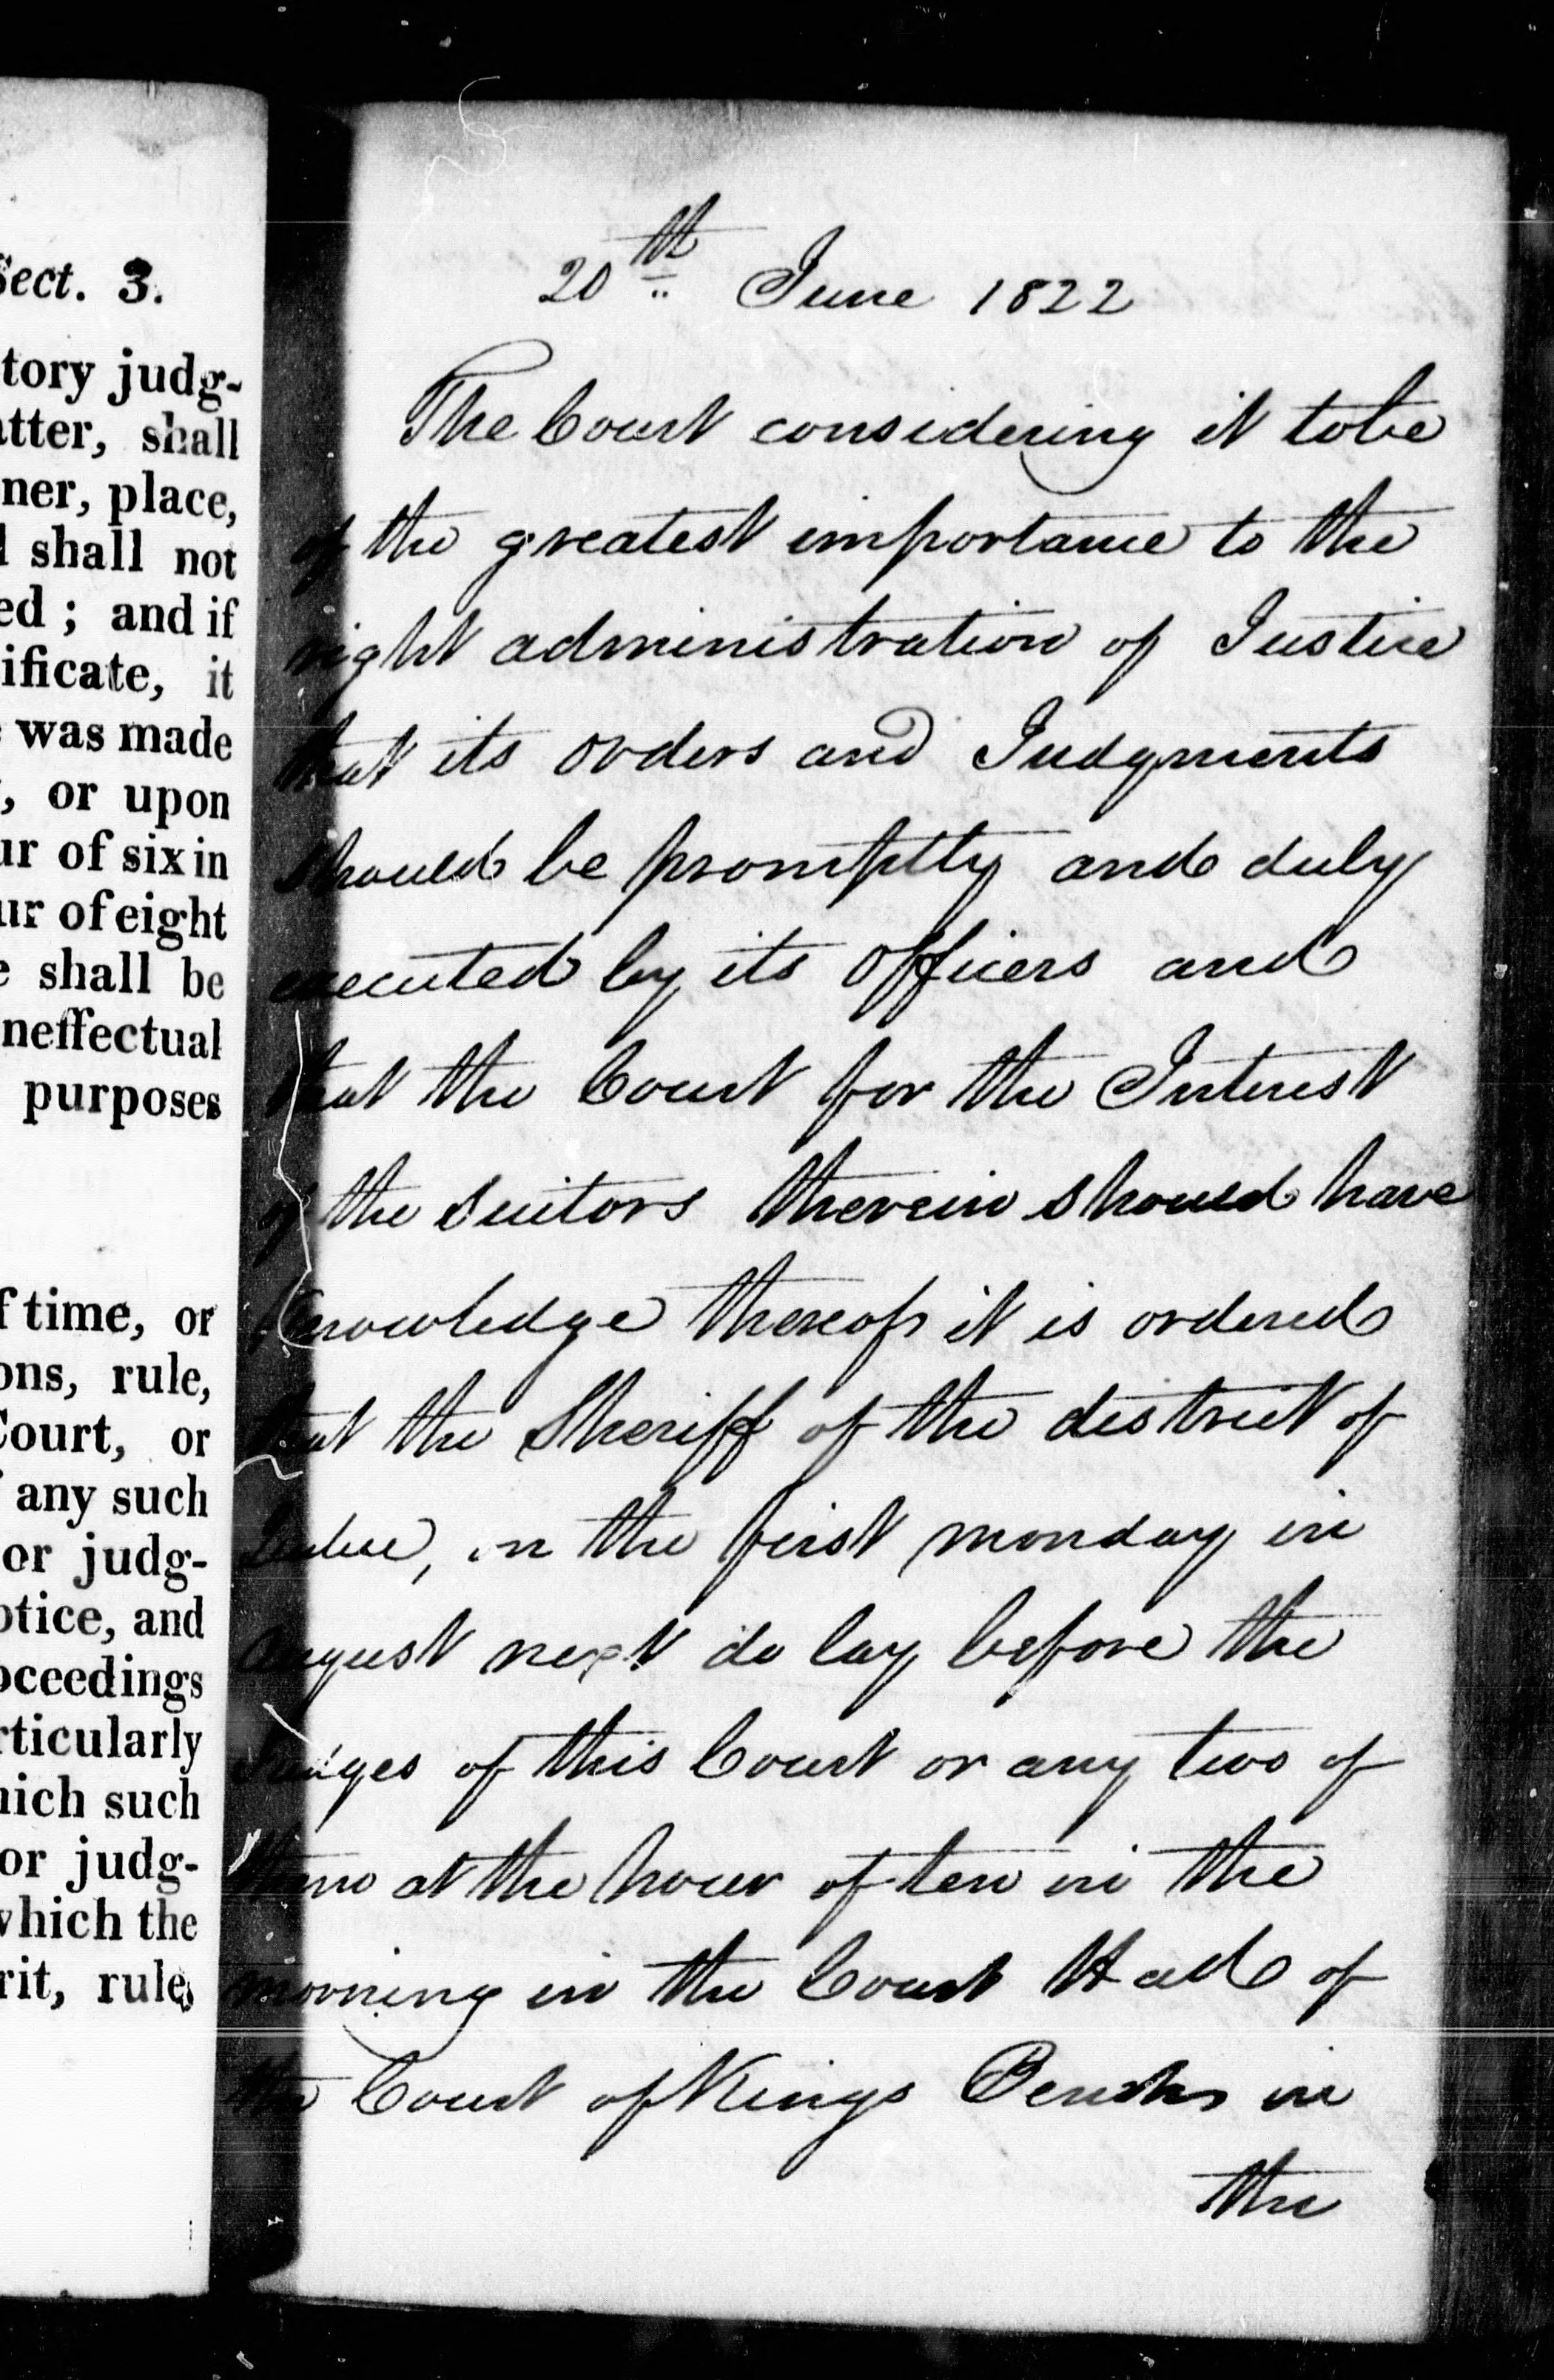 Sect. 3.
tory judg-
tter, shall
ner, place,
shall not
ed ; and if
ificate, it
was made
, or upon
ur of six in
ur of eight
shall be
neffectual
purposes
f time, or
ons, rule,
Court, or
any such
or judg-
otice, and
oceedings
rticularly
hich such
or judg-
which the
rit, rule,
20th June 1822
The Court considering it to be
of the greatest importance to the
right administration of Justice
that its orders and Judgments
should be promptly and duly
executed by its Officers and
that the Court for the Interest
of the Suitors therein should have
knowledge thereof it is ordered
that the Sheriff of the district of
Quebec, on the first monday in
August next do lay before the
Judges of this Court or any two of
them at the hour of ten in the
morning in the Court Hall of
the Court of Kings Bench in
the